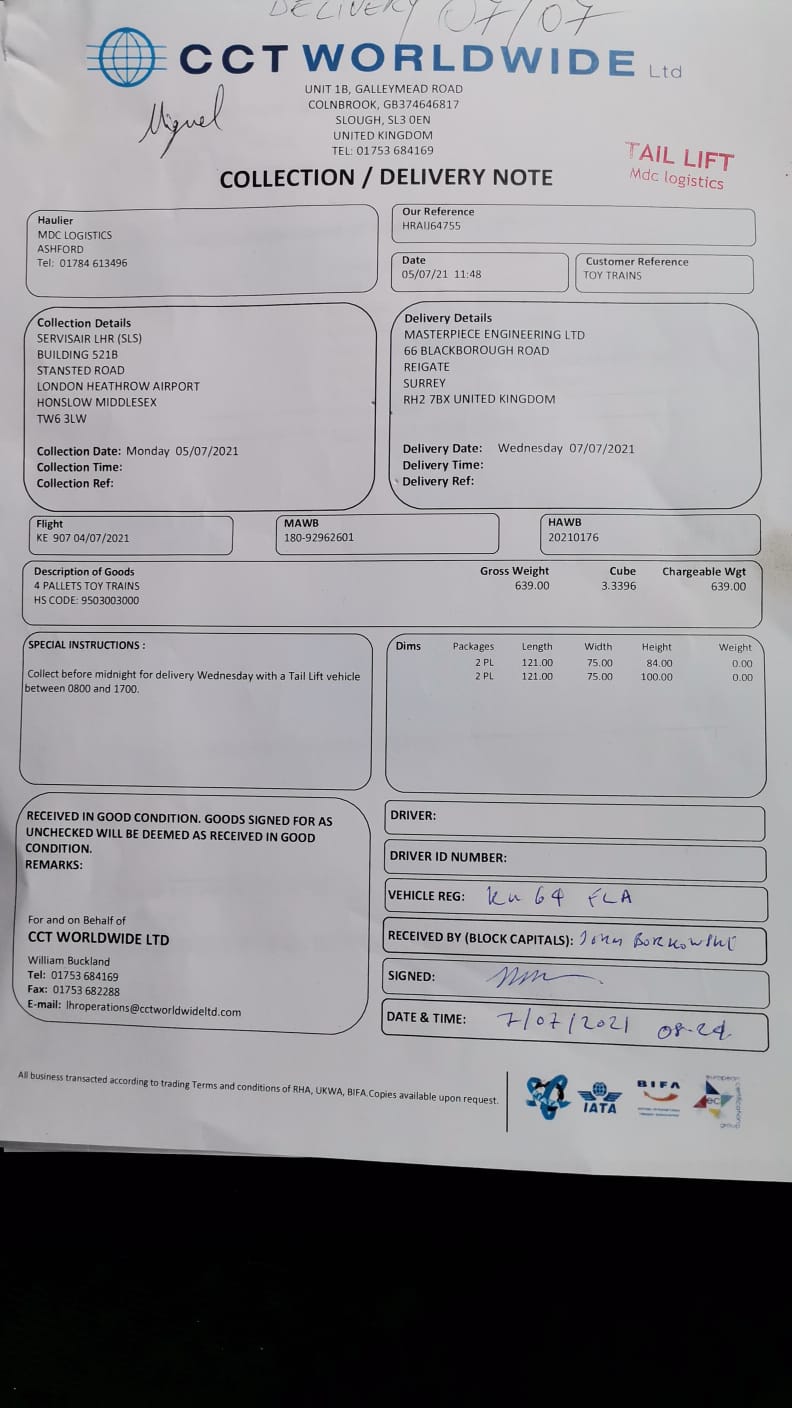 DELIVERY 07/07
CCT WORLDWIDE Ltd
UNIT 1B, GALLEYMEAD ROAD
COLNBROOK, GB374646817
SLOUGH, SL3 0EN
UNITED KINGDOM
TEL: 01753 684169
Miguel
TAIL LIFT
Mdc logistics
COLLECTION / DELIVERY NOTE
Haulier
MDC LOGISTICS
ASHFORD
Tel: 01784 613496
Our Reference
HRAIJ64755
Date
05/07/21 11:48
Customer Reference
TOY TRAINS
Collection Details
SERVISAIR LHR (SLS)
BUILDING 521B
STANSTED ROAD
LONDON HEATHROW AIRPORT
HONSLOW MIDDLESEX
TW6 3LW
Collection Date: Monday 05/07/2021
Collection Time:
Collection Ref:
Delivery Details
MASTERPIECE ENGINEERING LTD
66 BLACKBOROUGH ROAD
REIGATE
SURREY
RH2 7BX UNITED KINGDOM
Delivery Date: Wednesday 07/07/2021
Delivery Time:
Delivery Ref:
Flight
KE 907 04/07/2021
MAWB
180-92962601
HAWB
20210176
Description of Goods Gross Weight Cube Chargeable Wgt
4 PALLETS TOY TRAINS 639.00 3.3396 639.00
HS CODE: 9503003000
SPECIAL INSTRUCTIONS :
Collect before midnight for delivery Wednesday with a Tail Lift vehicle
between 0800 and 1700.
Dims Packages Length Width Height Weight
2 PL 121.00 75.00 84.00 0.00
2 PL 121.00 75.00 100.00 0.00
RECEIVED IN GOOD CONDITION. GOODS SIGNED FOR AS
UNCHECKED WILL BE DEEMED AS RECEIVED IN GOOD
CONDITION.
REMARKS:
For and on Behalf of
CCT WORLDWIDE LTD
William Buckland
Tel: 01753 684169
Fax: 01753 682288
E-mail: lhroperations@cctworldwideltd.com
DRIVER:
DRIVER ID NUMBER:
VEHICLE REG: KU 64 FLA
RECEIVED BY (BLOCK CAPITALS): BORKOWSKI
SIGNED:
DATE & TIME: 7/07/2021 08-24
All business transacted according to trading Terms and conditions of RHA, UKWA, BIFA.Copies available upon request.
IATA
BIFA
european
ec
certification
group